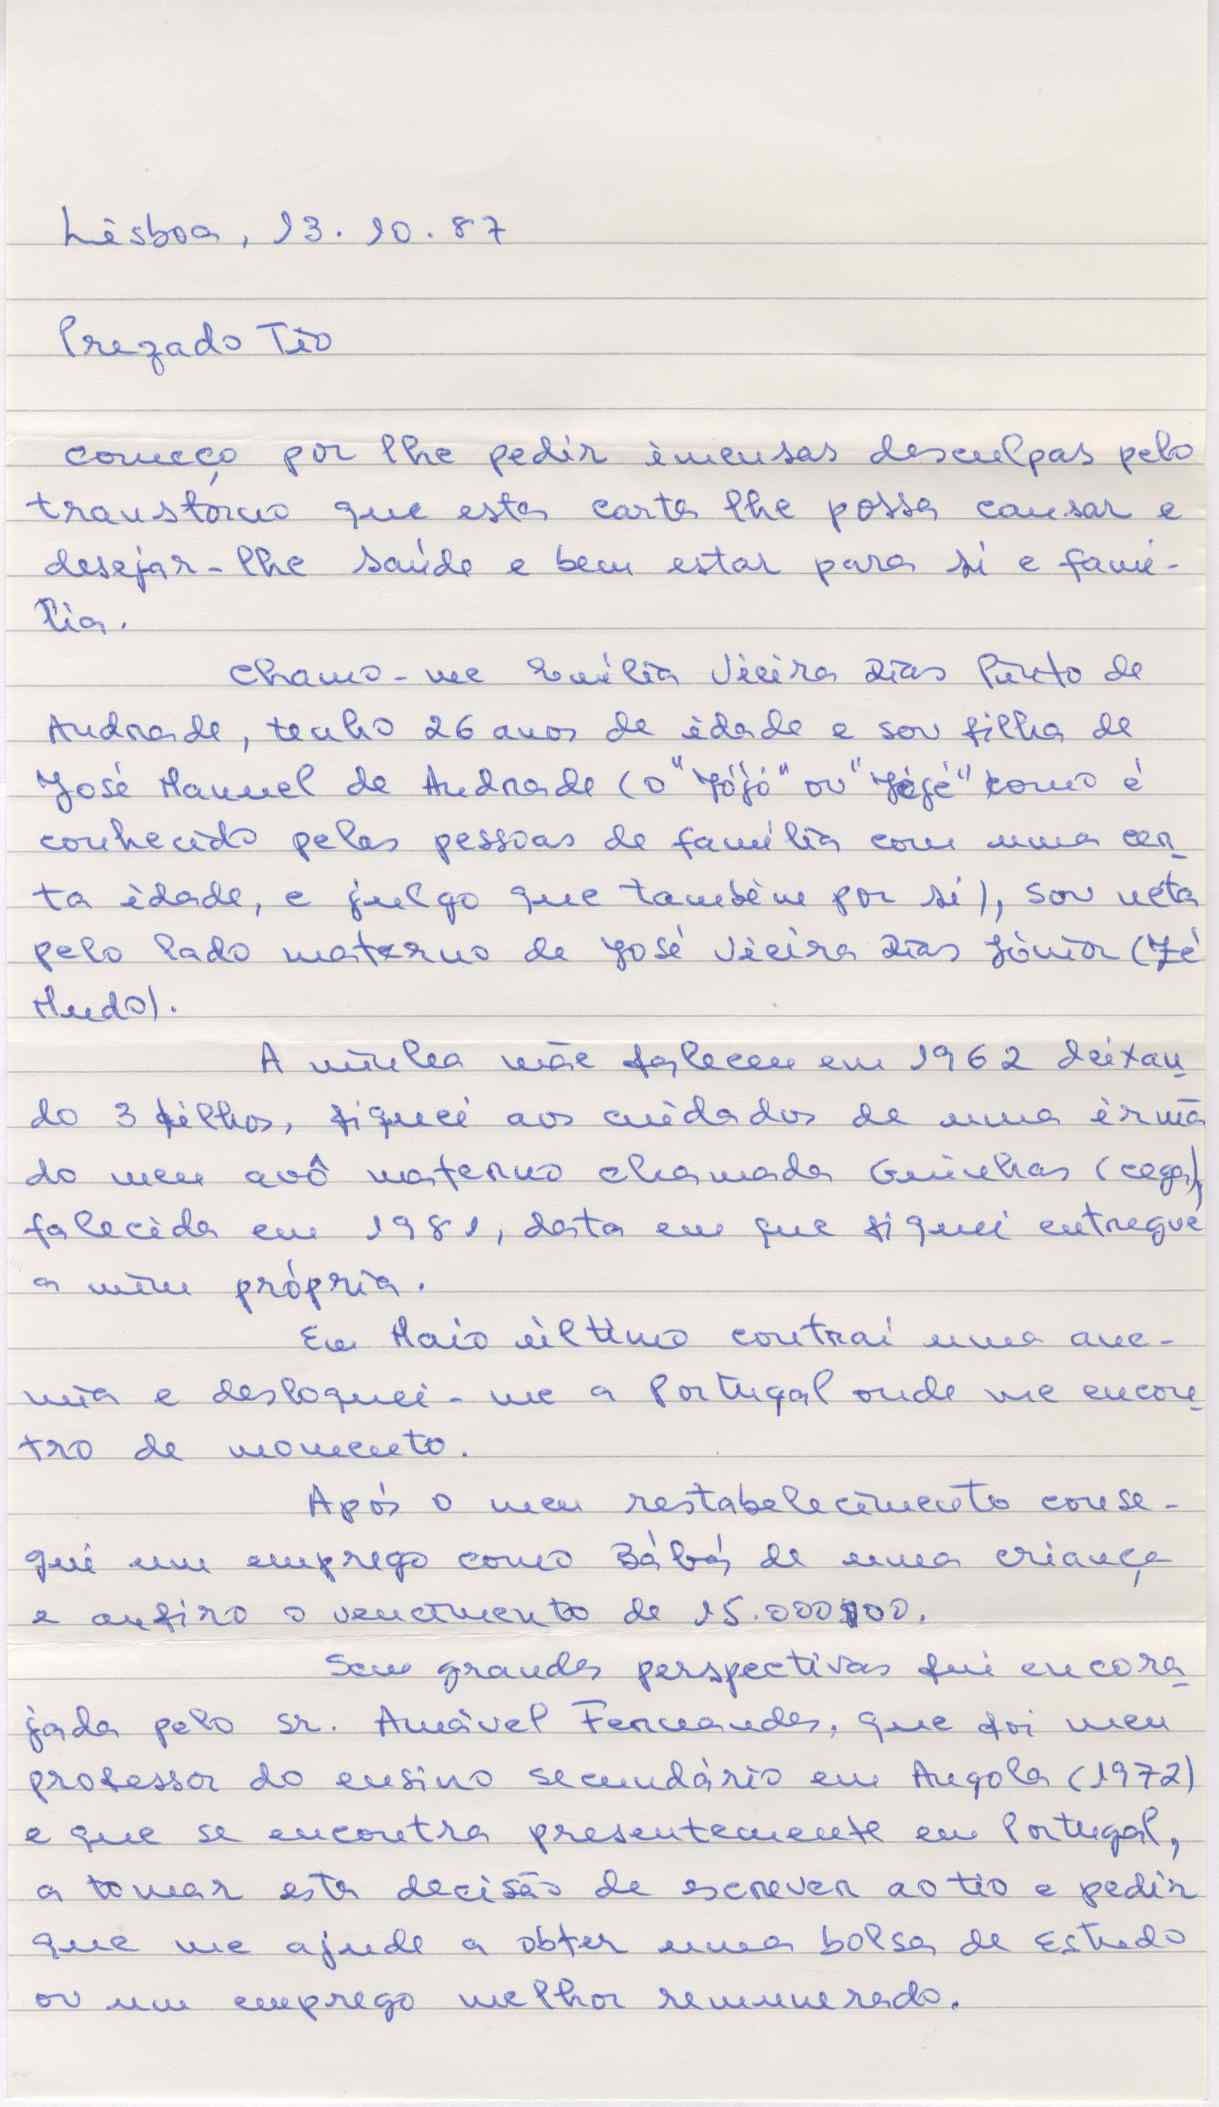 Lisboa, 13.10.87
Prezado Tio
começo por lhe pedir imensas desculpas pelo
transtôrno que esta carta lhe possa causar e
desejar-lhe saúde e bem estar para si e famí-
lia.
Chamo-me Emília Vieira Dias Pinto de
Andrade, tenho 26 anos de idade e sou filha de
José Manuel de Andrade (o "Jójó" ou "Jéjé" como é
conhecido pelas pessoas de família com uma cer-
ta idade, e julgo que também por si), sou neta
pelo lado materno de José Vieira Dias Júnior (Zé
Mudo).
A minha mãe faleceu em 1962 deixan-
do 3 filhos, fiquei aos cuidados de uma irmã
do meu avô materno chamada Guinhas (cega),
falecida em 1981, data em que fiquei entregue
a mim própria.
Em Maio último contraí uma ane-
mia e desloquei-me a Portugal onde me encon-
tro de momento.
Após o meu restabelecimento conse-
gui um emprego como Bábá de uma criança
e aufiro o vencimento de 15.000$00.
Sem grandes perspectivas fui encora-
jada pelo sr. Amável Fernandes, que foi meu
professor do ensino secundário em Angola (1972)
e que se encontra presentemente em Portugal,
a tomar esta decisão de escrever ao tio e pedir
que me ajude a obter uma bolsa de Estudo
ou um emprego melhor remunerado.